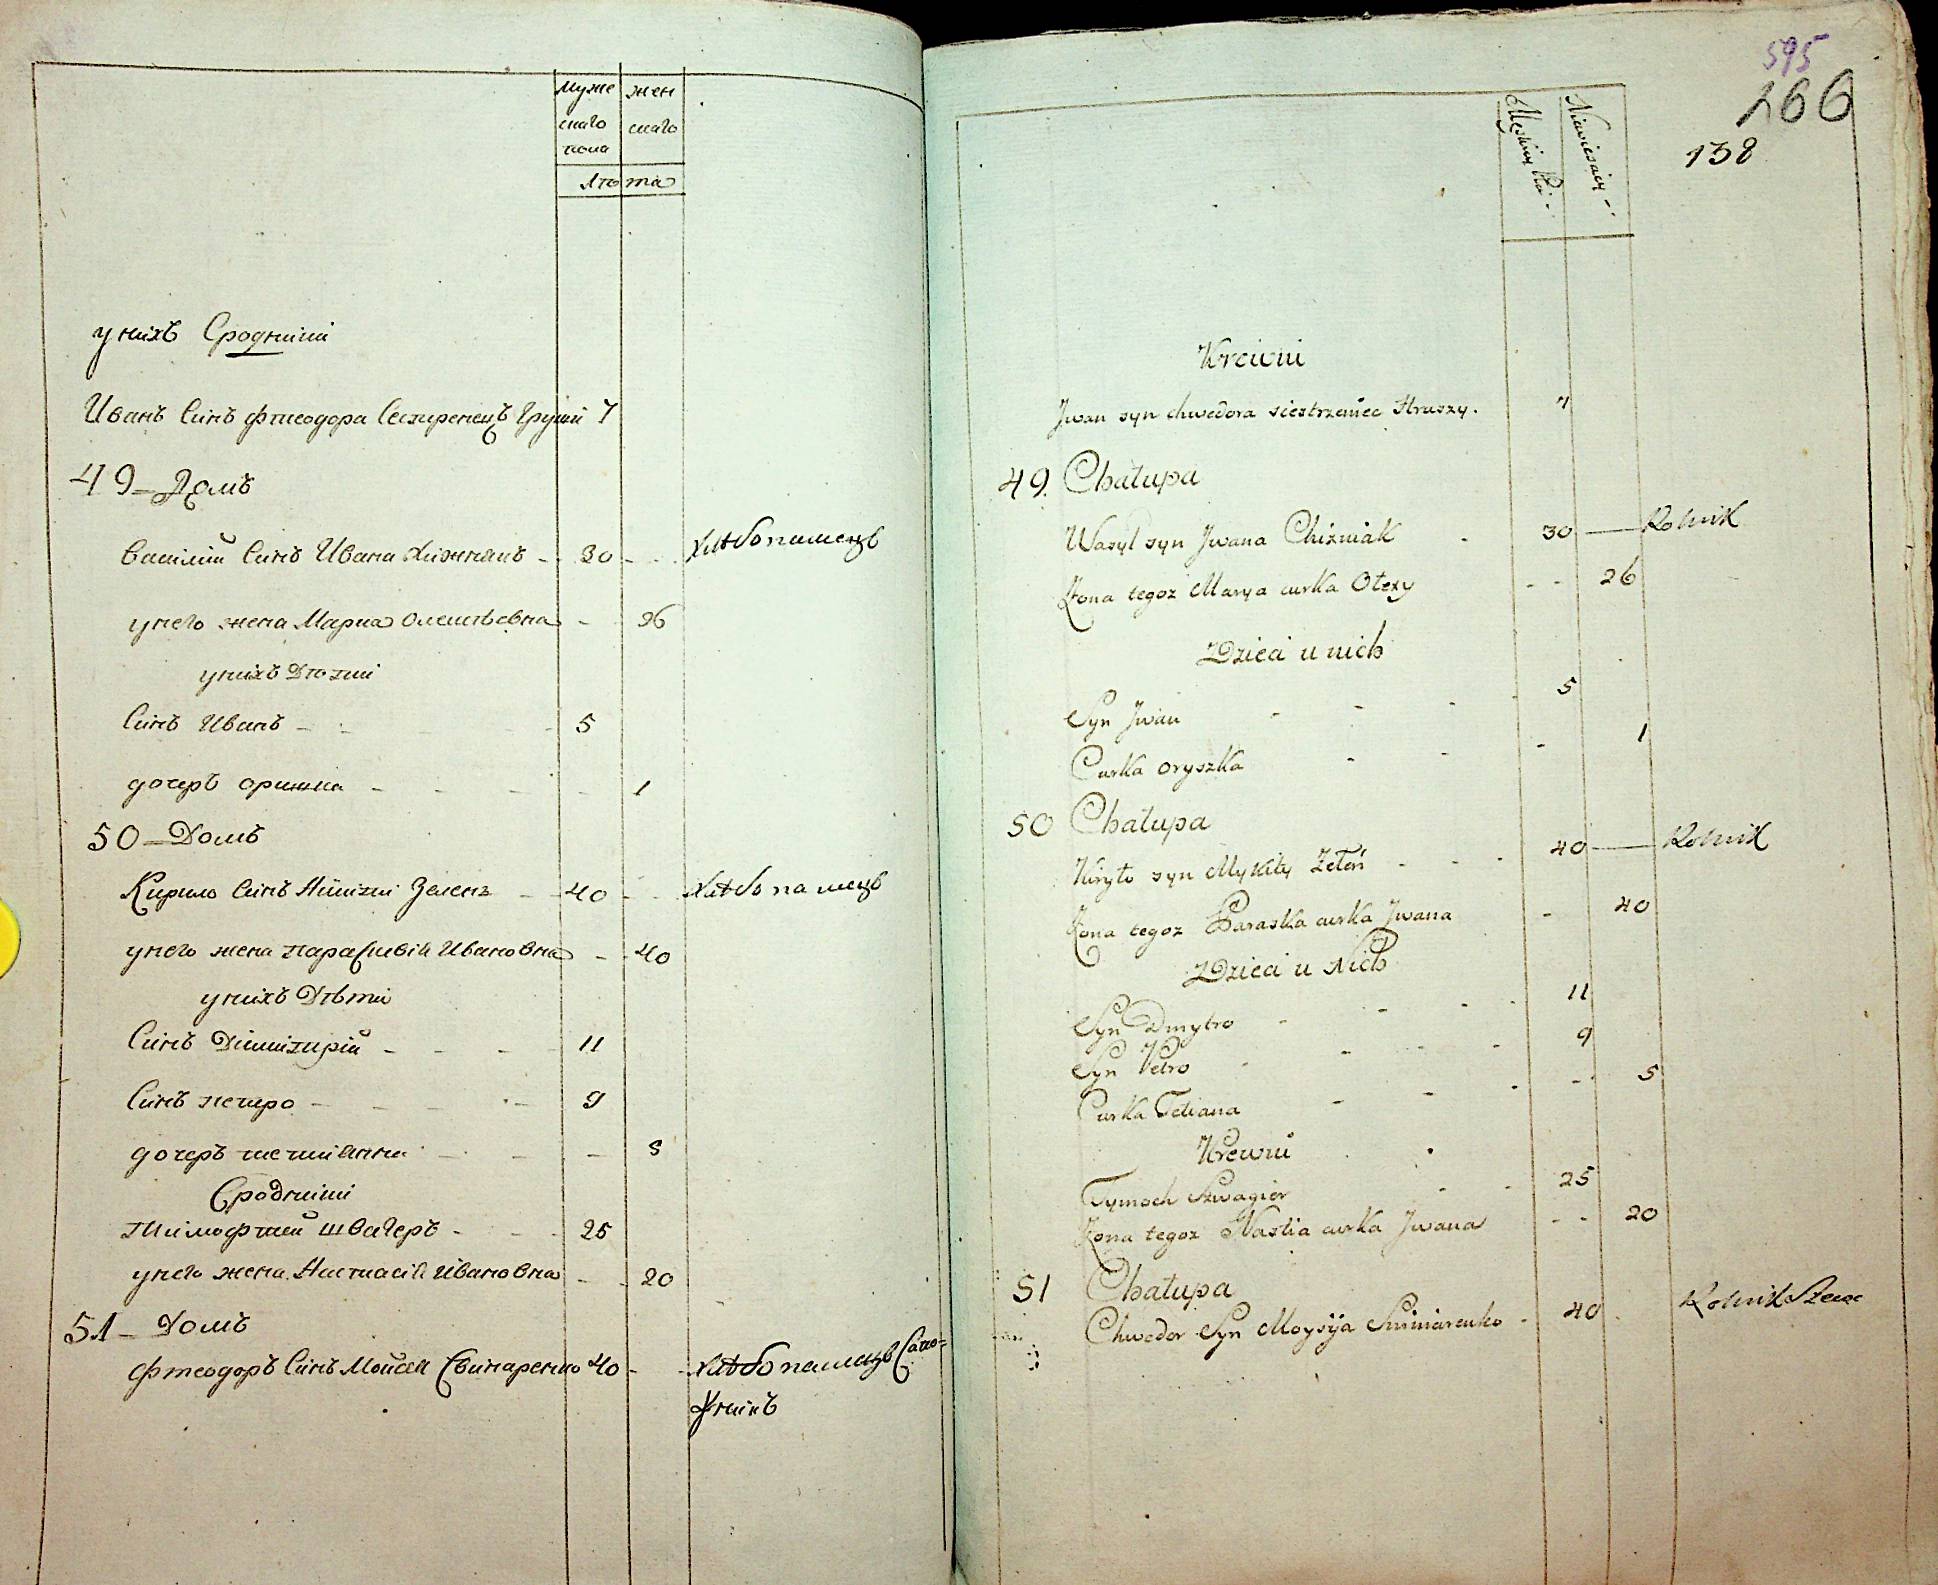 муже
скаго
пола
жен
скаго
лѣта
у нихъ Сродники
Иванъ Синъ Фтеодора Сестренецъ Груши 7
49 Домъ
Василий Синъ Ивана Хижнякъ 30 хлѣбопашецъ
у него жена Мариа Олексѣевна 26
у нихъ Дѣти
Синъ Иванъ 5
дочеръ оришка 1
50 Домъ
Кирило Синъ Никити Зеленъ 40 хлѣбопашецъ
у него жена параскивия Ивановна 40
у нихъ Дѣти
Синъ Димитрий 11
Синъ петро 9
дочеръ тетианна 5
Сродники
Тимофтей швагеръ 25
у него жена Настасия Ивановна 20
51 Домъ
Фтеодоръ Синъ Мойсея Свинаренко 40 хлѣбопашецъ Сапо=
жникъ
595
266
138
Męskiey Płci
Niewiesciey
Krewni
Jwan syn Chwedora siestrzeniec Hruszy. 7
49. Chałupa
Wasyl syn Jwana Chizniak 30 Rolnik
Żona tegoz Marya curka Olexy 26
Dzieci u nich
Syn Jwan 5
Curka Oryszka 1
50 Chałupa
Kiryło syn Mykity Zeleń 40 Rolnik
Żona tegoz Paraska curka Jwana 40
Dzieci u Nich
Syn Dmytro 11
Syn Petro 9
Curka Tetiana 5
Krewni
Tymoch Szwagier 25
Żona tegoz Nastia curka Jwana 20
51 Chałupa
Chwedor Syn Moysija Swinarenko 40 Rolnik Szewc